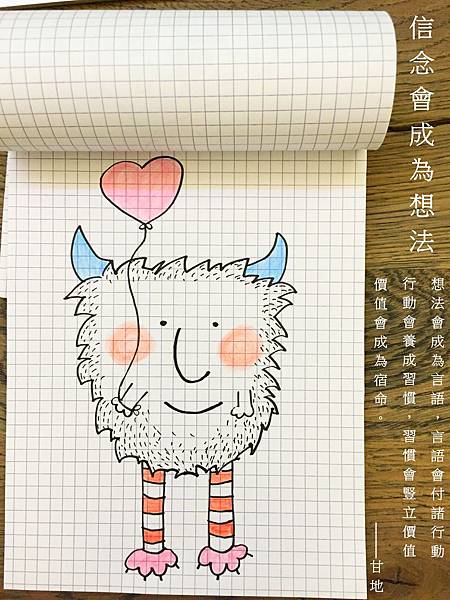 信念會成為想法
想法會成為言語，言語會付諸行動
行動會養成習慣，習慣會豎立價值
價值會成為宿命。
——甘地